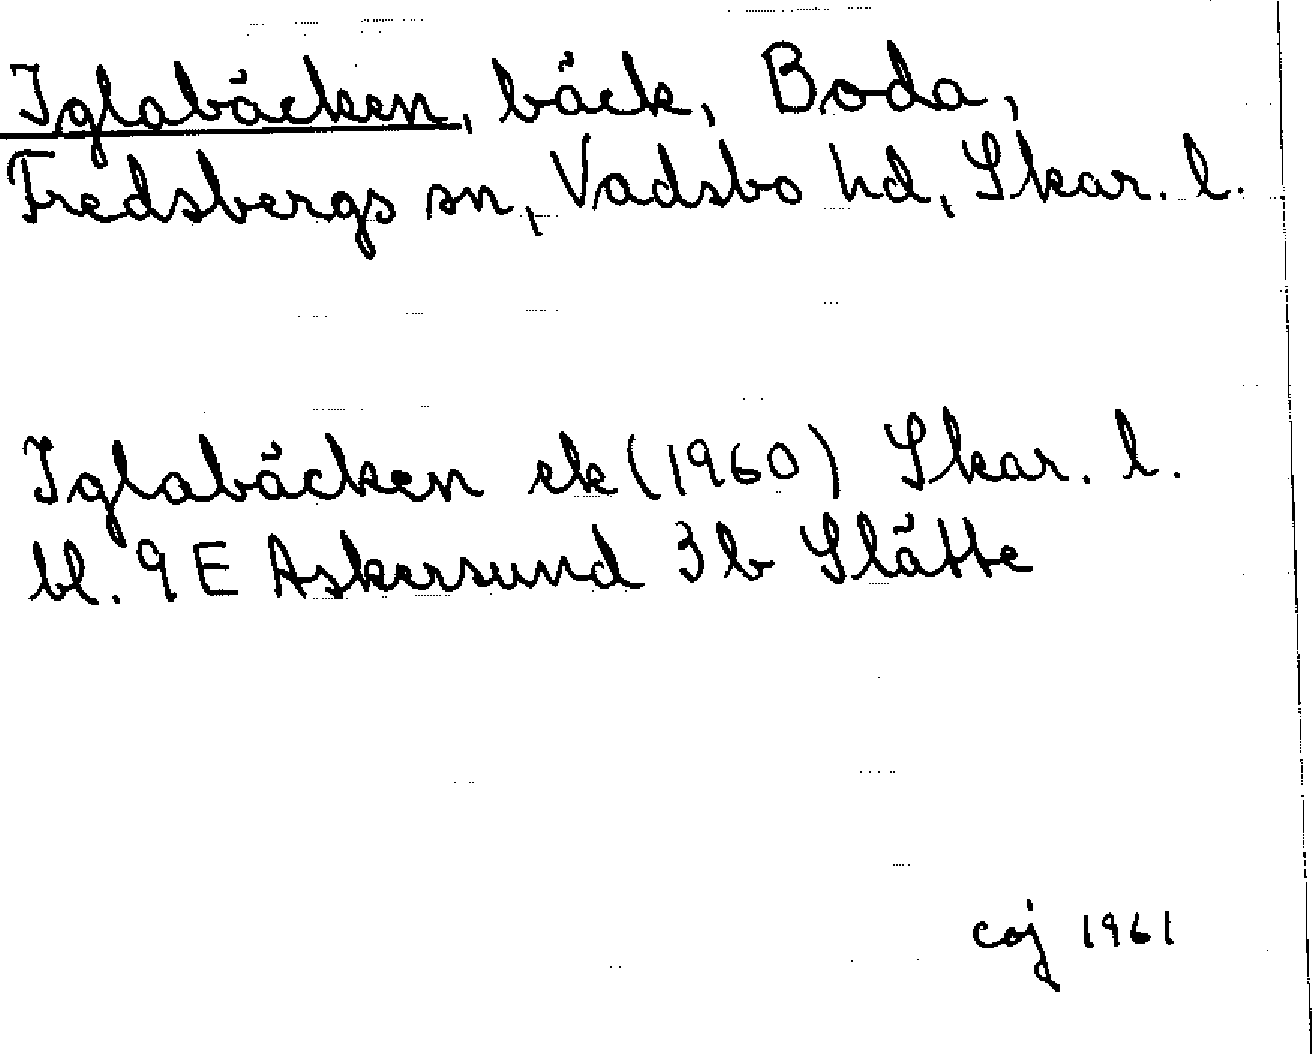 Iglabäcken, bäck, Boda,
Fredsbergs sn, Vadsbo hd, Skar. l.
Iglabäcken ek (1960) Skar. l.
bl. 9 E Askersund 3 b Slätte
coj 1961